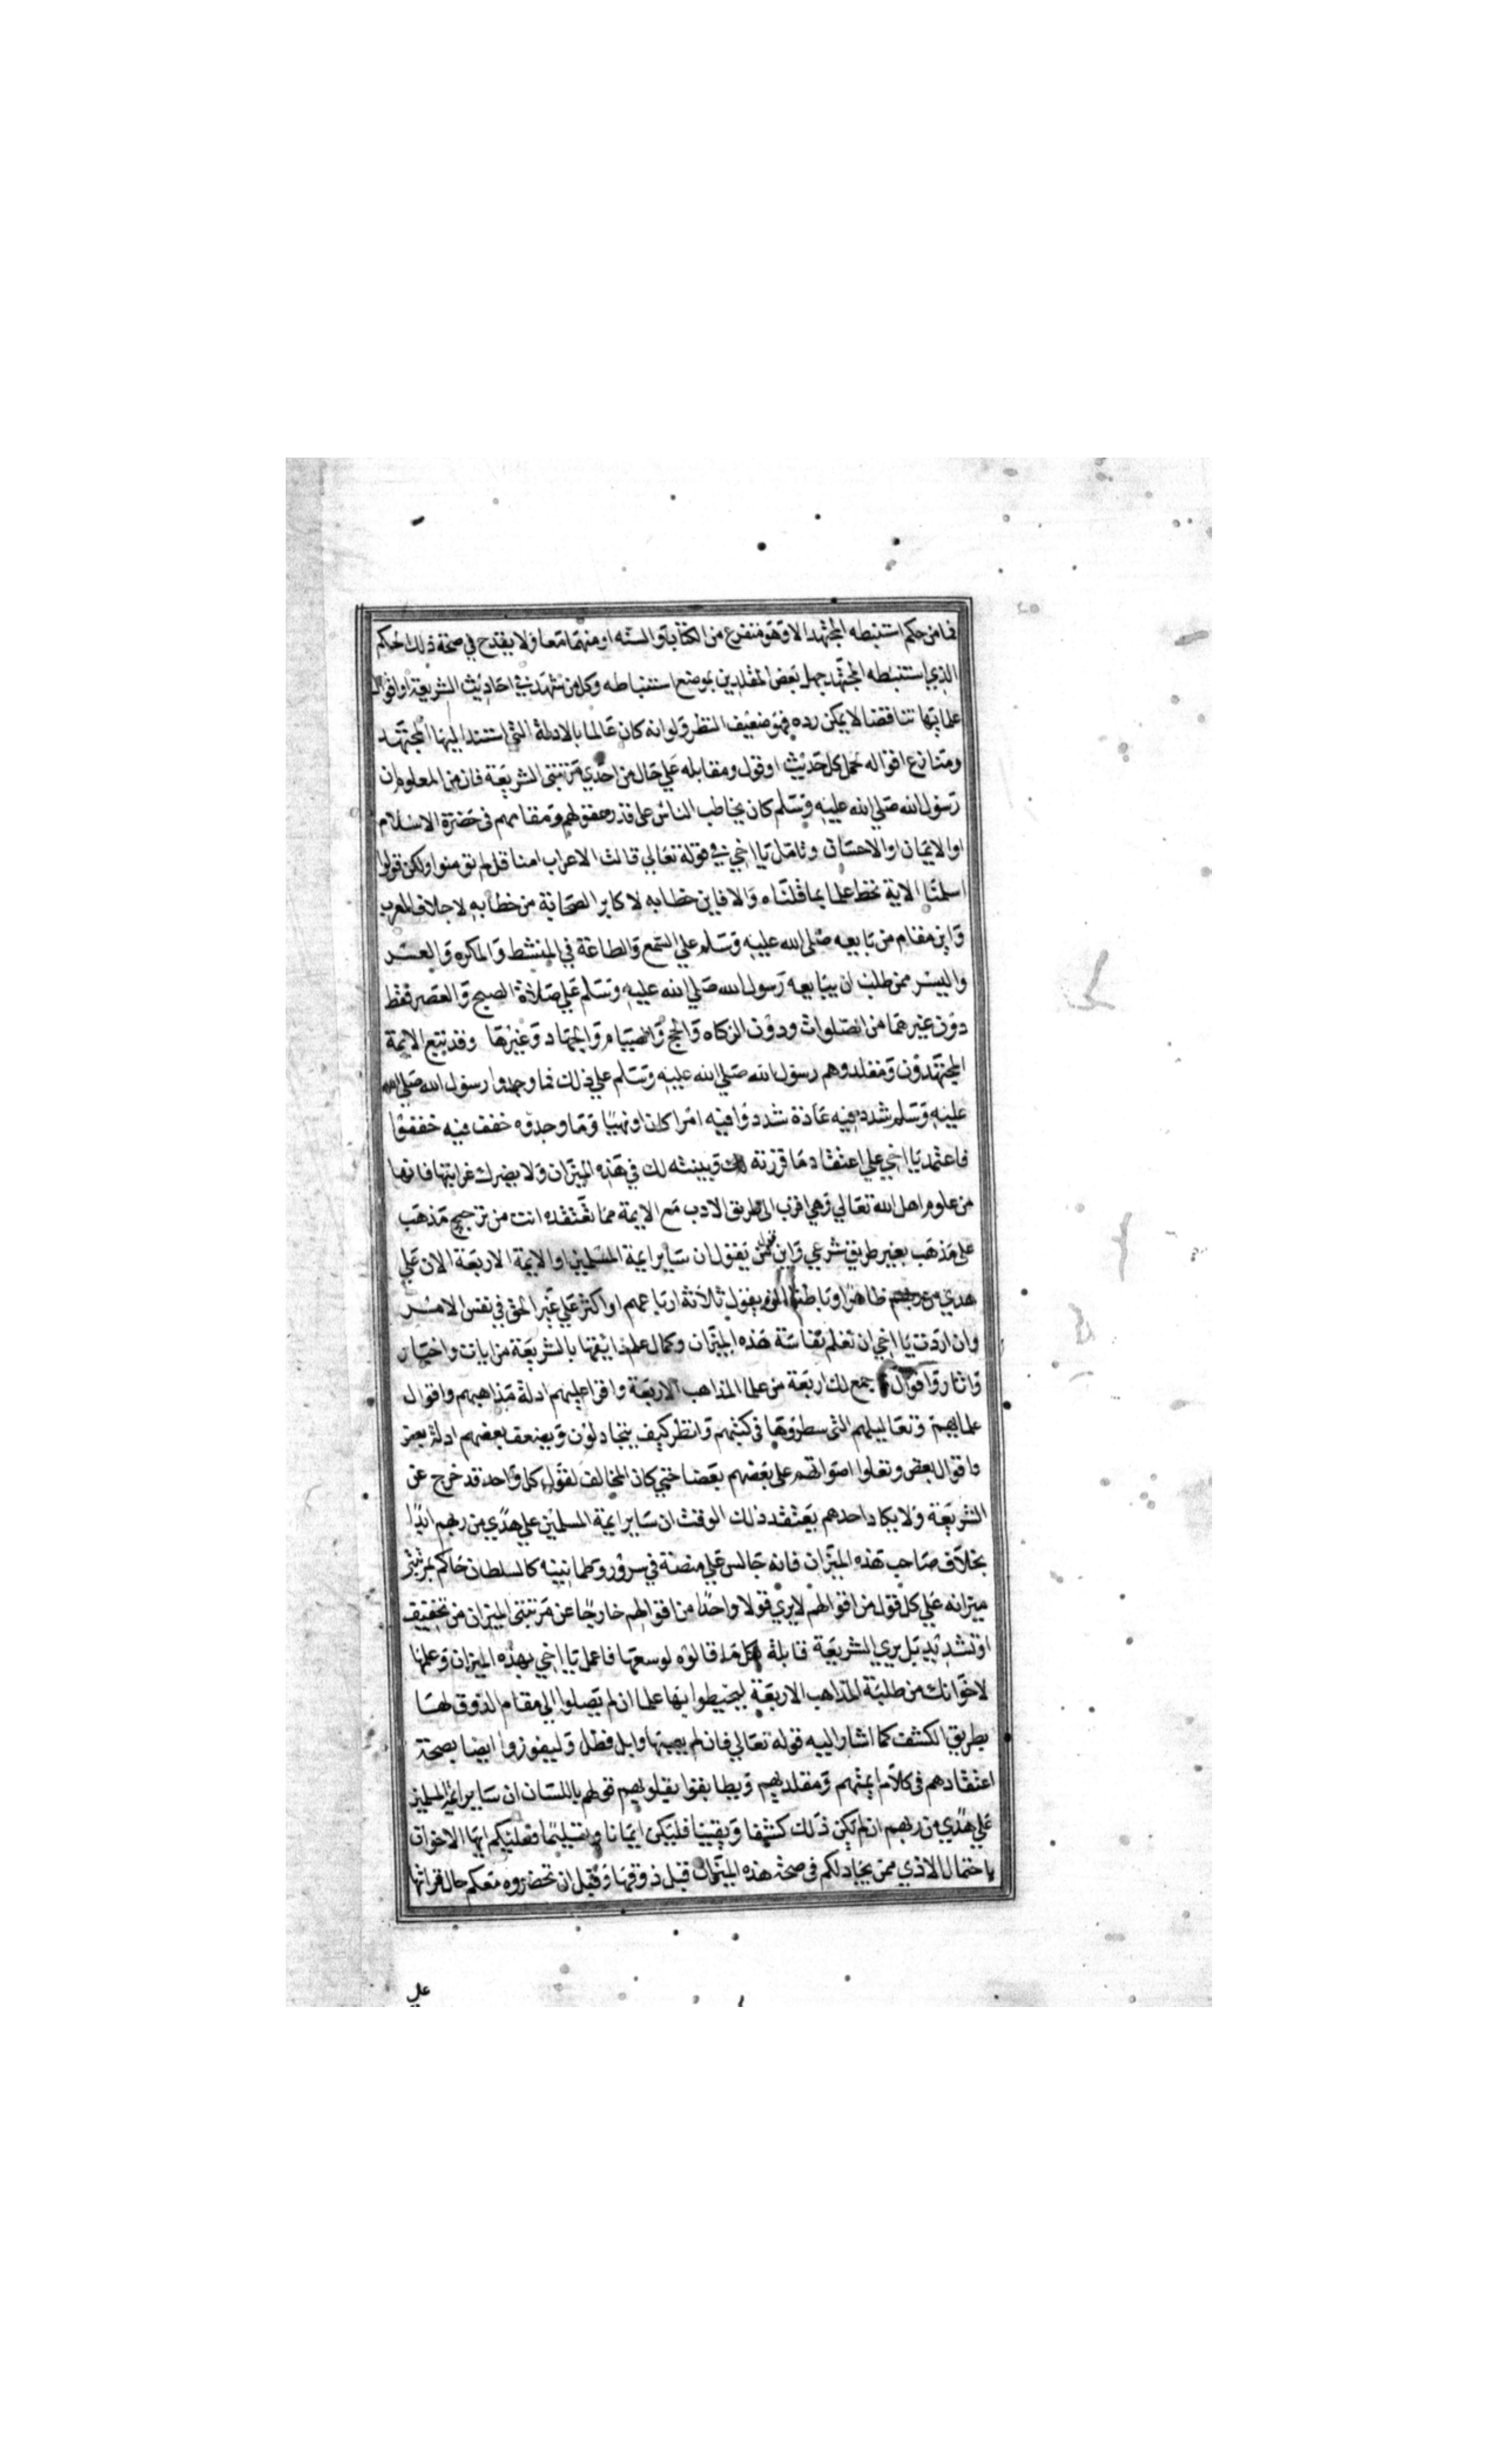 فما من حكم استنبطه المجتهد الا وهو متفرع من الكتاب او السنه او منهما معا ولا يقدح في صحة ذلك الحكم
الذي استنبطه المجتهد جهل بعض المقلدين بموضع استنباطه وكل من شهد في احاديث الشريعة او اقوال
علمايها تناقضا لا يمكن رده فهو ضعيف النظر ولو انه كان عالما بالادلة التي استند اليها المجتهد
ومنازع اقواله لحمل كل حديث او قول ومقابله علي حال من احدي مرتبتي الشريعة فان من المعلوم ان
رسول الله صلي الله عليه وسلم كان يخاطب الناس على قدر عقولهم ومقامهم في حضرة الاسلام
او الايمان او الاحسان وتامل يا اخي في قوله تعالي قالت الاعراب امنا قل لم تومنوا ولكن قولوا
اسلمنا الاية تحط علما بما قلناه والا فاين خطابه لاكابر الصحابة من خطابه لاجلاف العرب
واين مقام من بايعه صلى الله عليه وسلم علي السمع والطاعة في المنشط والمكره والعسر
واليسر ممن طلب ان يبايعه رسول الله صلي الله عليه وسلم علي صلاة الصبح والعصر فقط
دون غيرهما من الصلوات ودون الزكاه والحج والصيام والجهاد وغيرها وقد تبع الايمة
المجتهدون ومقلدوهم رسول الله صلي الله عليه وسلم علي ذلك فما وجدوا رسول الله صلي الله
عليه وسلم شدد فيه عادة شددوا فيه امرا كان او نهيا وما وجدوه خفف فيه خففوا
فاعتمد يا اخي علي اعتقاد ما قررته لك وبينته لك في هذه الميزان ولا يضرك غرابتها فانها
من علوم اهل الله تعالي وهي اقرب الى طريق الادب مع الايمة مما تعتقده انت من ترجيح مذهب
على مذهب بغير طريق شرعي واين قول من يقول ان ساير ايمة المسلمين او الايمة الاربعة الان علي
هدي من ربهم ظاهرا وباطنا ممن يقول ثلاثة ارباعهم او اكثر علي غير الحق في نفس الامر
وان اردت يا اخي ان تعلم نفاسة هذه الميزان وكمال علم ذايقها بالشريعة من ايات واخبار
واثار واقوال فاجمع لك اربعة من علما المذاهب الاربعة واقرا عليهم ادلة مذاهبهم واقوال
علمايهم وتعاليلهم التي سطروها في كتبهم وانظر كيف يتجادلون ويضعف بعضهم ادلة بعض
واقوال بعض وتعلوا اصواتهم على بعضهم بعضا حتي كان المخالف لقول كل واحد قد خرج عن
الشريعة ولا يكاد احدهم يعتقد ذلك الوقت ان ساير ايمة المسلمين علي هدي من ربهم ابدا
بخلاف صاحب هذه الميزان فانه جالس علي منصة في سرور وطمانينه كالسلطان حاكم بمرتبتي
ميزانه علي كل قول من اقوالهم لا يري قولا واحدا من اقوالهم خارجا عن مرتبتي الميزان من تخفيف
او تشديد بل يري الشريعة قابلة لكل ما قالوه لوسعها فاعمل يا اخي بهذه الميزان وعلمها
لاخوانك من طلبة المذاهب الاربعة ليحيطوا بها علما ان لم يصلوا الي مقام الذوق لها
بطريق الكشف كما اشار اليه قوله تعالي فان لم يصبها وابل فطل وليفوزوا ايضا بصحة
اعتقادهم في كلام ايمتهم ومقلديهم ويطابقوا بقلوبهم قولهم باللسان ان ساير ايمة المسلمين
علي هدي من ربهم ان لم يكن ذلك كشفا ويقينا فليكن ايمانا وتسليما فعليكم ايها الاخوان
باحتمال الاذي ممن يجادلكم في صحة هذه الميزان قبل ذوقها وقبل ان تحضروه معكم حال قراتها
على